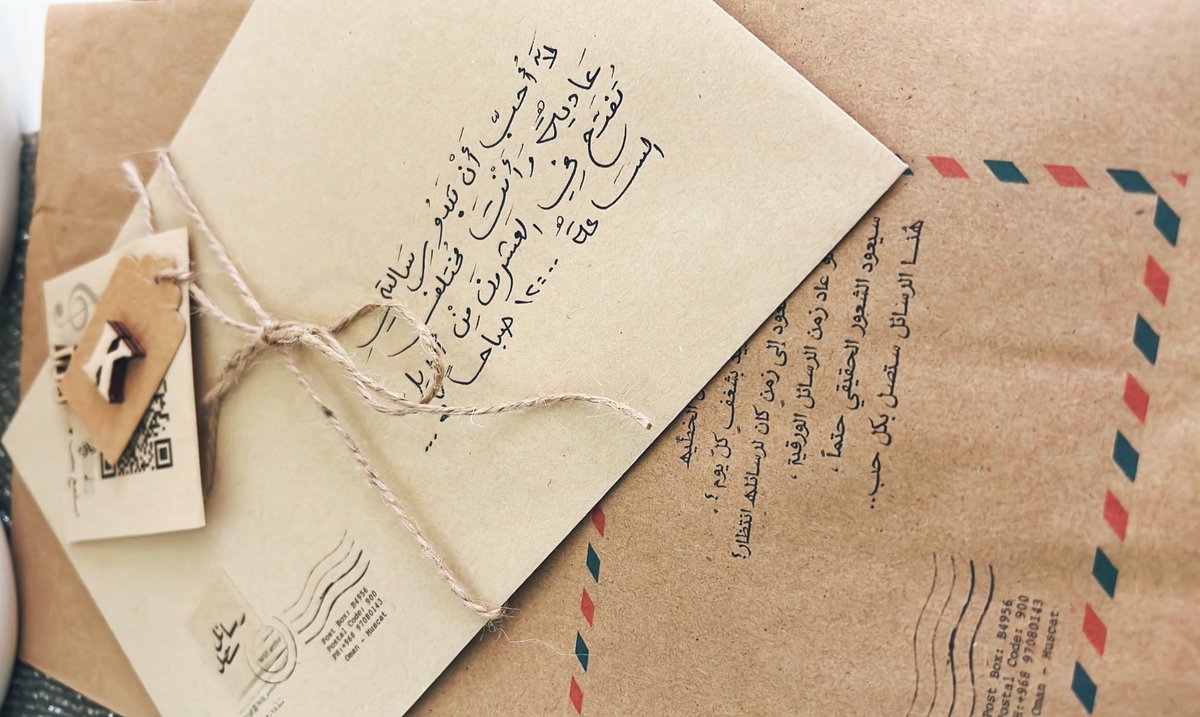 لا أُحبّ أَنْ تبدُو رسَالتِي
عَاديةً وَأَنْتَ مُختَلِف
تُفتَح فِي العِشرين مِنْ
السَاعة ١٢:٠٠ صباحاً
رسائل
Post Box: B4956
Postal Code: 900
PH:+968 97080143
Oman - Muscat
الخطيّه
بشغفٍ كلّ يوم ؟
إلى زمن كان لرسائله انتظار؟
عاد زمن الرسائل الورقية ،
سيعود الشعور الحقيقي حتماً ،
هُنا الرسائل ستصل بكل حب..
Post Box: B4956
Postal Code: 900
H:+968 97080143
Oman - Muscat